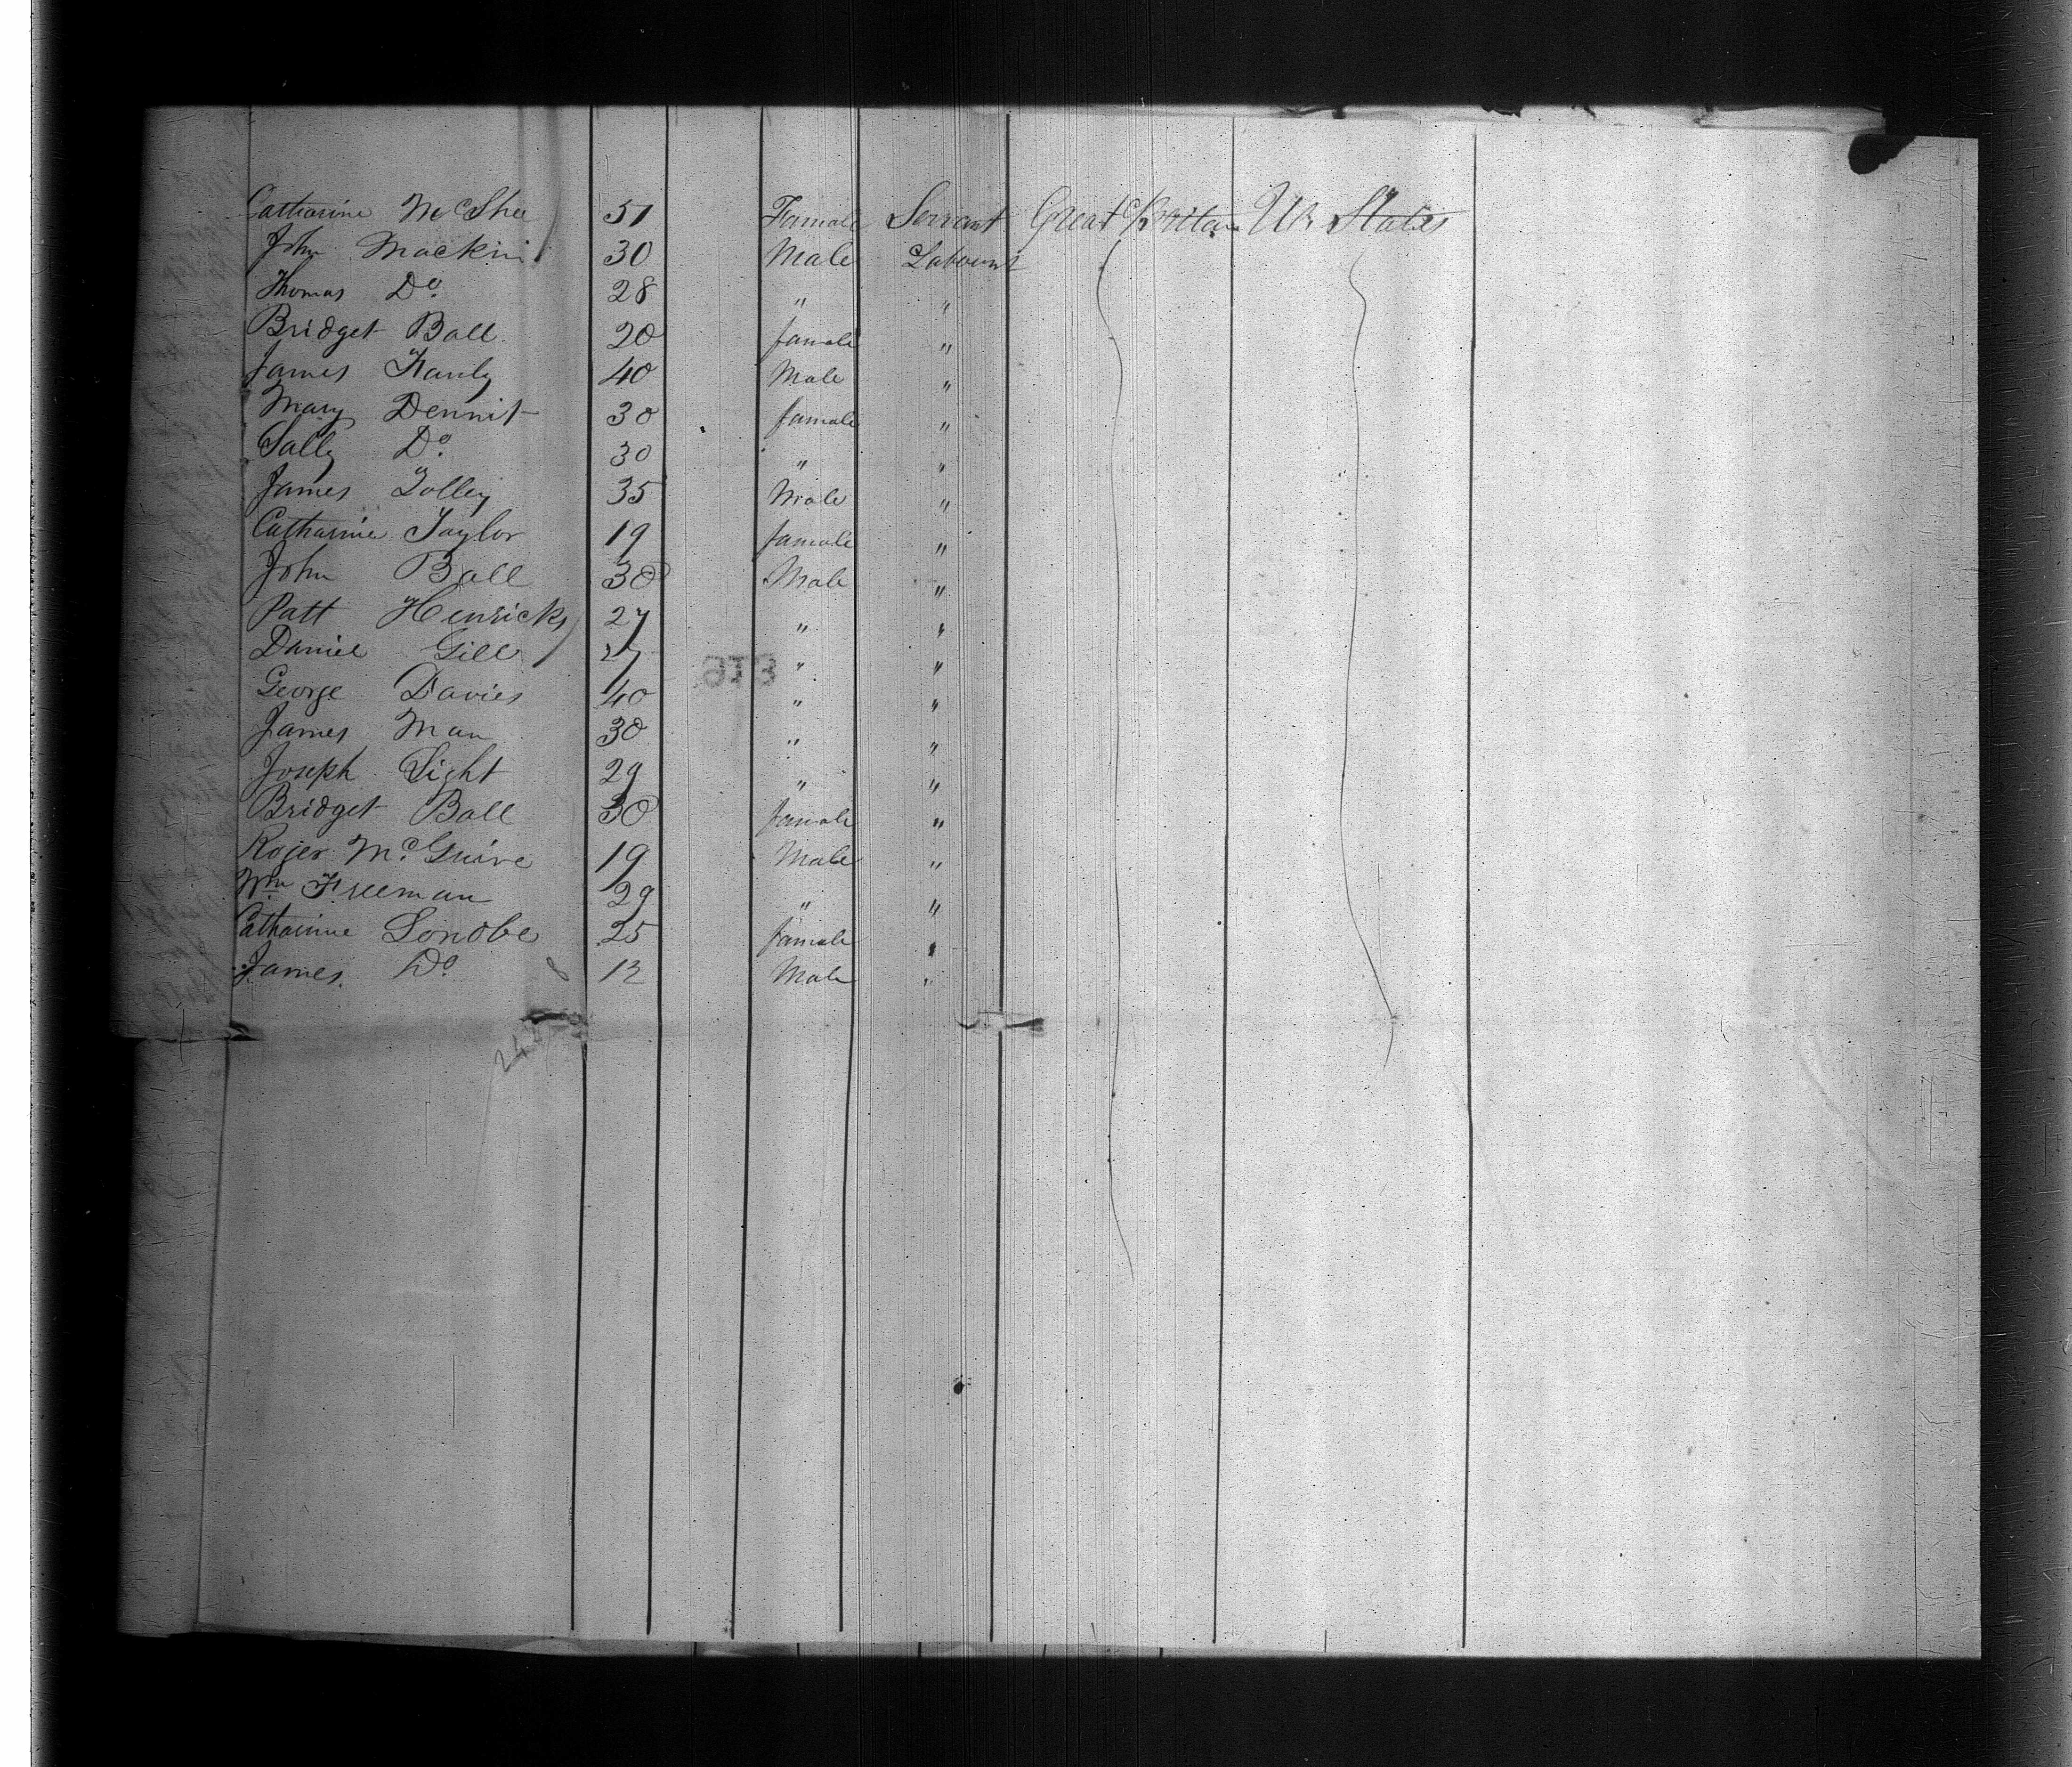 Catharine McShee 51 Famale Servant Great Britan U. States
John Mackin 30 Male Labourer
Thomas Do 28 " "
Bridget Ball 20 famale "
James Hanly 40 Male "
Mary Dennit 30 famale "
Sally Do 30 " "
James Golley 35 Male "
Catharine Taylor 19 famale "
John Ball 30 Male "
Patt Henricks 27 " "
Daniel Gill 27 " "
George Davies 40 " "
James Man 30 " "
Joseph Light 29 " "
Bridget Ball 30 famale "
Rojer McGuire 19 Male "
Wm Freeman 29 " "
Catharine Lonobe 25 famale "
James Do 12 Male "